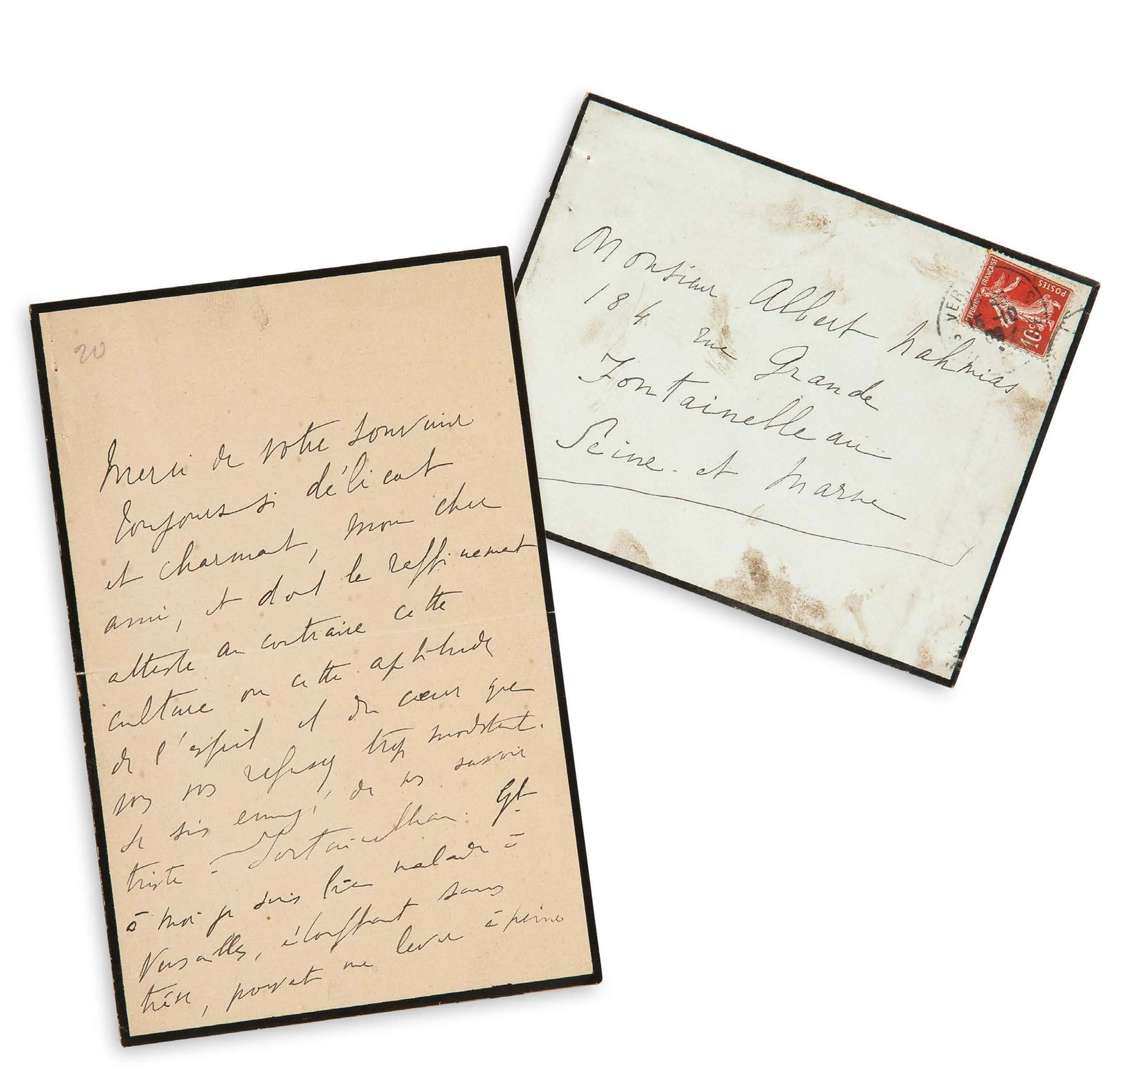 20
Merci de votre souvenir
toujours si délicat
et charmant, mon cher
ami, et dont le raffinement
atteste au contraire cette
culture ou cette aptitude
de l'esprit et du cœur que
vous vous refusez trop modestement.
Je suis ennuyé de vous savoir
triste à Fontainebleau. Qt
à moi je suis bien malade à
Versailles, étouffant sans
trêve, pouvant me lever à peine
Monsieur Albert Nahmias
184 rue Grande
Fontainebleau
Seine-et Marne
POSTES
FRANÇAISE
10c
VER